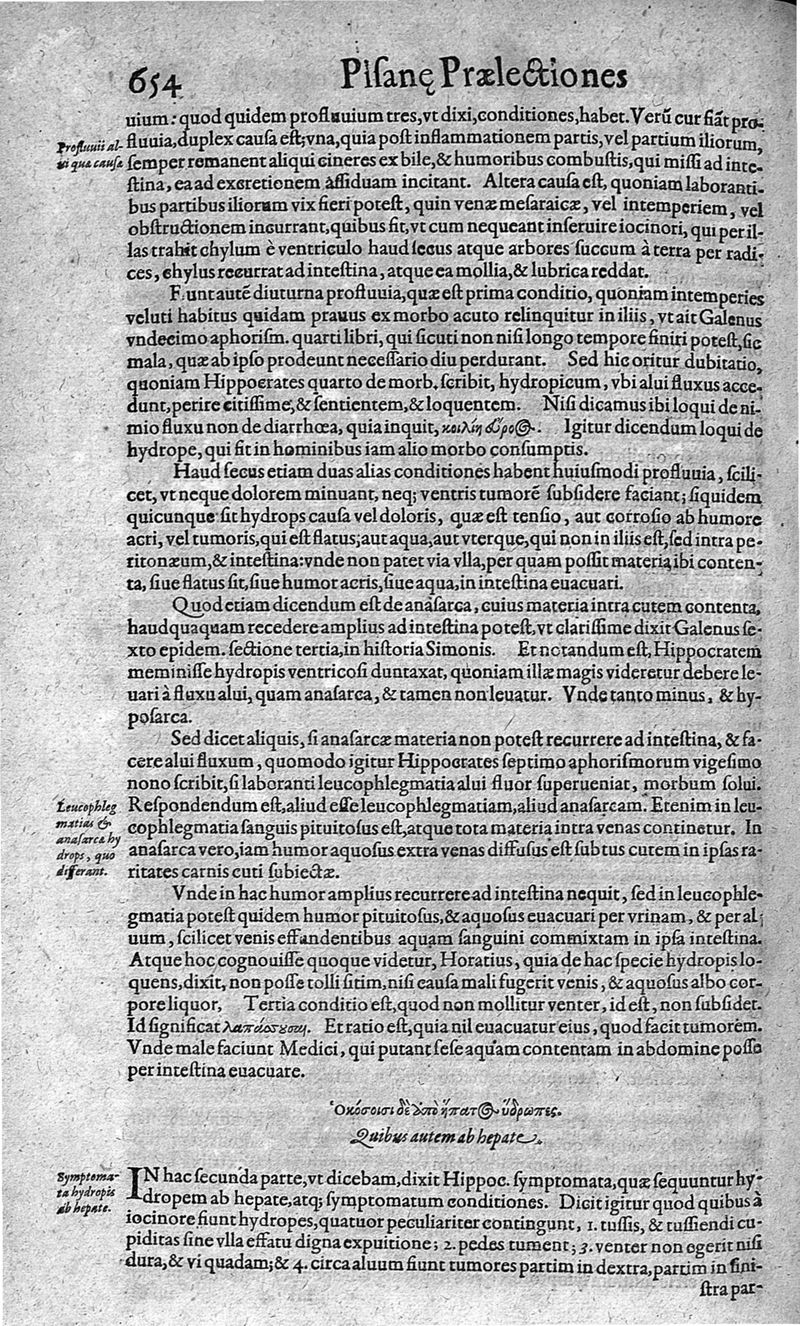 654 Pisanę Prælectiones
uium: quod quidem profluuium tres, vt dixi, conditiones, habet. Verũ cur fiãt pro-
Profluuii al-
ui quæ causa
fluuia, duplex causa est; vna, quia post inflammationem partis, vel partium iliorum,
semper remanent aliqui cineres ex bile, & humoribus combustis, qui missi ad inte-
stina, ea ad excretionem àssiduam incitant. Altera causa est, quoniam laboranti-
bus partibus iliorum vix fieri potest, quin venæ mesaraicæ, vel intemperiem, vel
obstructionem incurrant, quibus fit, vt cum nequeant inseruire iocinori, qui per il-
las trahit chylum è ventriculo haud secus atque arbores succum à terra per radi-
ces, chylus recurrat ad intestina, atque ea mollia, & lubrica reddat.
Fiunt autẽ diuturna profluuia, quæ est prima conditio, quoniam intemperies
veluti habitus quidam prauus ex morbo acuto relinquitur in iliis, vt ait Galenus
vndecimo aphorism. quarti libri, qui sicuti non nisi longo tempore finiri potest, sic
mala, quæ ab ipso prodeunt necessario diu perdurant. Sed hic oritur dubitatio,
quoniam Hippocrates quarto de morb. scribit, hydropicum, vbi alui fluxus acce-
dunt, perire citissime, & sentientem, & loquentem. Nisi dicamus ibi loqui de ni-
mio fluxu non de diarrhœa, quia inquit, κοιλίη ὕδρος. Igitur dicendum loqui de
hydrope, qui fit in hominibus iam alio morbo consumptis.
Haud secus etiam duas alias conditiones habent huiusmodi profluuia, scili-
cet, vt neque dolorem minuant, neq; ventris tumorẽ subsidere faciant; siquidem
quicunque sit hydrops causa vel doloris, quæ est tensio, aut corrosio ab humore
acri, vel tumoris, qui est flatus; aut aqua, aut vterque, qui non in iliis est, sed intra pe-
ritonæum, & intestina: vnde non patet via vlla, per quam possit materia ibi conten-
ta, siue flatus sit, siue humor acris, siue aqua, in intestina euacuari.
Quod etiam dicendum est de anasarca, cuius materia intra cutem contenta,
haudquaquam recedere amplius ad intestina potest, vt clarissime dixit Galenus se-
xto epidem. sectione tertia, in historia Simonis. Et notandum est, Hippocratem
meminisse hydropis ventricosi duntaxat, quoniam illæ magis videretur debere le-
uari à fluxu alui, quam anasarca, & tamen non leuatur. Vnde tanto minus, & hy-
posarca.
Sed dicet aliquis, si anasarcæ materia non potest recurrere ad intestina, & fa-
cere alui fluxum, quomodo igitur Hippocrates septimo aphorismorum vigesimo
nono scribit, si laboranti leucophlegmatia alui fluor superueniat, morbum solui.
Leucophleg
matias &
anasarca hy
drops, quo
differant.
Respondendum est, aliud esse leucophlegmatiam, aliud anasarcam. Etenim in leu-
cophlegmatia sanguis pituitosus est, atque tota materia intra venas continetur. In
anasarca vero, iam humor aquosus extra venas diffusus est subtus cutem in ipsas ra-
ritates carnis cuti subiectæ.
Vnde in hac humor amplius recurrere ad intestina nequit, sed in leucophle-
gmatia potest quidem humor pituitosus, & aquosus euacuari per vrinam, & per al-
uum, scilicet venis effundentibus aquam sanguini commixtam in ipsa intestina.
Atque hoc cognouisse quoque videtur, Horatius, quia de hac specie hydropis lo-
quens, dixit, non posse tolli sitim, nisi causa mali fugerit venis, & aquosus albo cor-
pore liquor, Tertia conditio est, quod non mollitur venter, id est, non subsidet.
Id significat λαπάσσουσι. Et ratio est, quia nil euacuatur eius, quod facit tumorem.
Vnde male faciunt Medici, qui putant sese aquam contentam in abdomine posse
per intestina euacuare.
Ὁκόσοισι δὲ ἀπὸ ἥπατος ὕδρωπες.
Quibus autem ab hepate.
Symptoma-
ta hydropis
ab hepate.
IN hac secunda parte, vt dicebam, dixit Hippoc. symptomata, quæ sequuntur hy-
dropem ab hepate, atq; symptomatum conditiones. Dicit igitur quod quibus à
iocinore fiunt hydropes, quatuor peculiariter contingunt, 1. tussis, & tussiendi cu-
piditas sine vlla effatu digna expuitione; 2. pedes tument; 3. venter non egerit nisi
dura, & vi quadam; & 4. circa aluum fiunt tumores partim in dextra, partim in sini-
stra par-